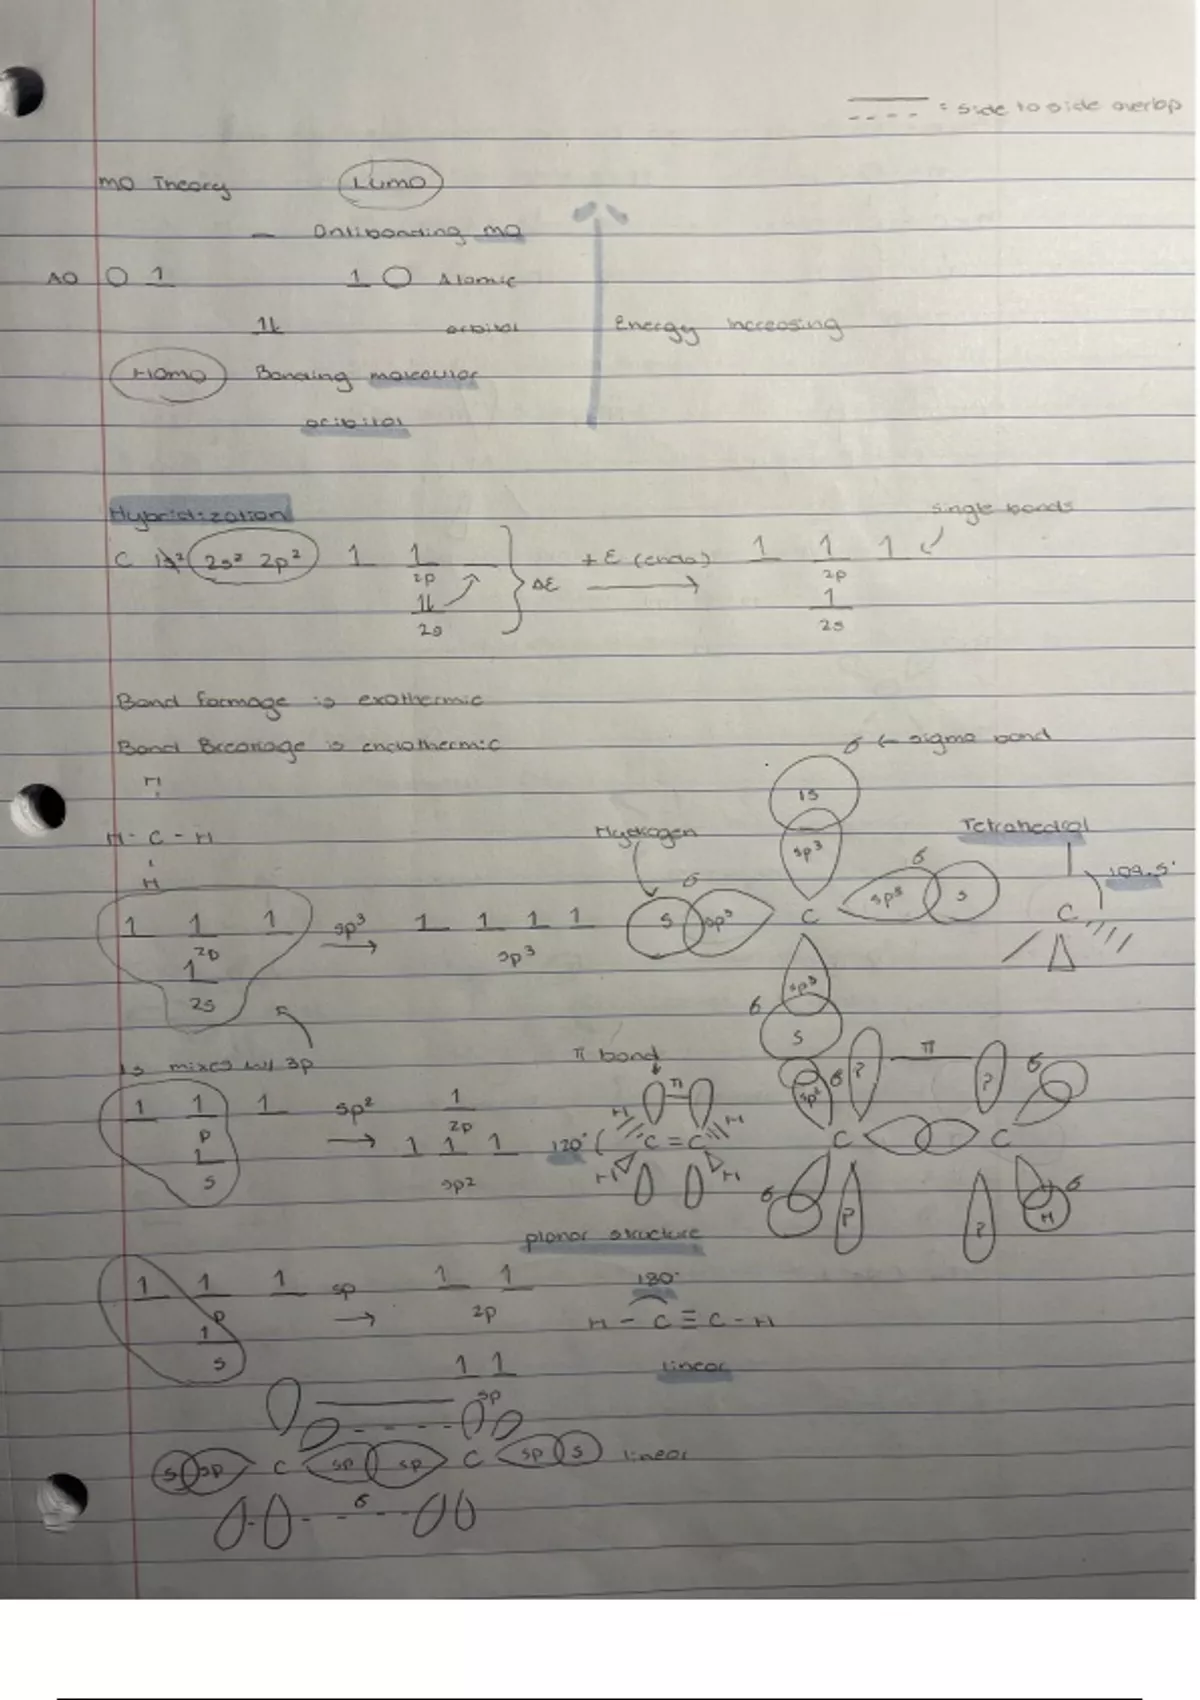 = side to side overlap
MO Theory LUMO
Antibonding MO
AO 1 1 Atomic
1L orbital Energy increasing
HOMO Bonding molecular
orbital
Hybridization single bonds
C 1s² 2s² 2p² 1 1 ΔE +E (endo) → 1 1 1
2p 2p
1L 1
2s 2s
Bond formage is exothermic
Bond Breakage is endothermic
σ ← sigma bond
H
1s
H - C - H Hydrogen sp³ Tetrahedral
H σ σ 109.5°
1 1 1 sp³ → 1 1 1 1 s sp³ C sp³ s C
2p sp³
1 sp³
2s σ s
1s mixes w/ 3p π bond π
1 1 1 sp² → 1 π sp² σ P P σ
P 2p H H
1 1 1 1 120° C = C C C
s sp² H H σ P P H σ
planar structure
1 1 1 sp → 1 1 180°
P 2p H - C ≡ C - H
1
s 1 1 linear
sp
s sp C sp sp C sp s linear
σ